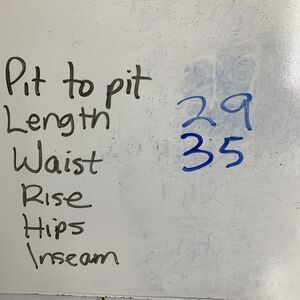 Pit to pit
Length 29
Waist 35
Rise
Hips
Inseam